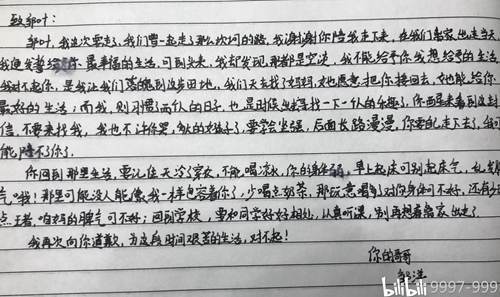 致邹叶:
邹叶,我这次要走了,我们曾一起走了那么坎坷的路,我谢谢你陪我走下来,在我们离家出走当天
我便发誓给你最幸福的生活,可到头来,我却发现,那都是空谈,我不能给予你我想给予的生活
我对不起你,是我让我们落魄到这步田地,我们天去找了妈妈,她愿意把你接回去,她能给你
最好的生活;而我,则习惯一个人的日子,也是时候出去寻找一下一个人的乐趣了,你
信,不要来找我,我也不许你哭,女孩子了,要学会坚强,后面长路漫漫,你要自己走下去了,我可
能陪不了你了。
你回到那里生活,要记住天冷了穿衣,不能喝凉水,你的身体弱,早上起床可别起床气
气哦!那里可能没人能像我一样包容着你了,少喝点奶茶,那玩意喝多对你身体可不好,还有少
点王者,咱妈的脾气可不好;回到学校,要和同学好好相处,认真听课,别再想着离家出走了。
我再次向你道歉,为这段时间艰苦的生活,对不起!
你的哥哥
邹洪
bilibili 9997-999